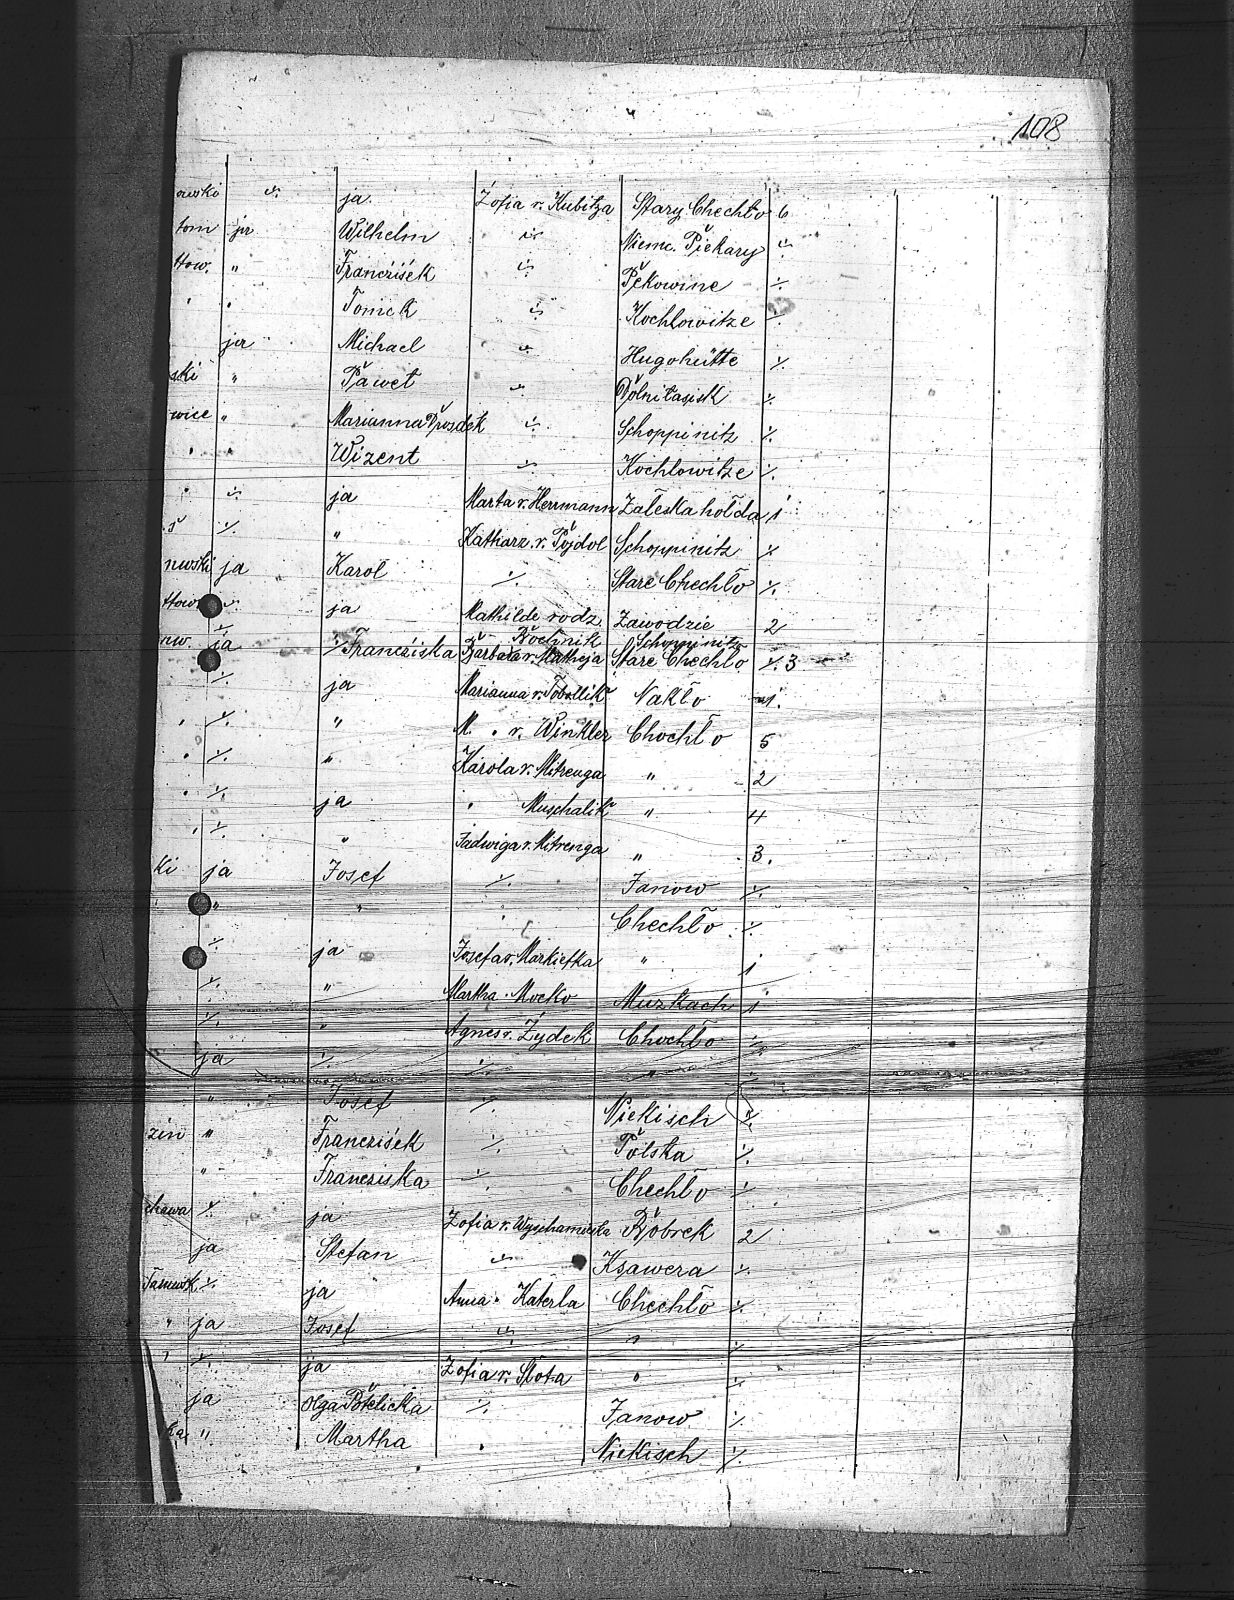 108
owski ·/· ja. Zofia v. Kubitza Stary Chechło 6
tom ja Wilhelm ·/· Niemc. Piekary ·/·
ttow. " Francziśek ·/· Pękowine ·/·
" " Tomek ·/· Kochlowitze ·/·
ja Michael ·/· Hugohütte ·/·
ski " Paweł ·/· ·/·
wice " Marianna ·/· Schoppinitz ·/·
" " Wizent ·/· Kochlowitze ·/·
" ·/· ja Marta v. Herrmann Zaleska hołda 1
·/· " Katharz. v. Pojdol Schoppinitz ·/·
nwski ja Karol ·/· Stare Chechło ·/·
ttow. ·/· ja Mathilde rodz. Zawodzie 2
Bochnik Schoppinitz
nw. ja Francziska Barbara v. Matheja Stare Chechło ·/· 3
·/· ja Marianna v. Nakło 1.
" ·/· " M. " v. Winkler Chechło 5
" ·/· " Karola v. Mitrenga " 2
" ·/· ja " Muschalik " 4
" ·/· " Jadwiga v. Mitrenga " 3.
ki ja Josef ·/· Janow ·/·
" " Chechło ·/·
·/· ja Josefa v. Markiefka " 1
·/· " Martha Mocko Murkach 1
·/· " Agnes v. Zydek Chechło ·/·
ja ·/· ·/· "
" Josef ·/· Niekisch ·/·
zin " Francziśek ·/· Polska ·/·
" Franciska ·/· Chechło ·/·
chawa ·/· ja Zofia v. Bobrek 2
ja Stefan ·/· Ksawera ·/·
Tarnowsk ·/· ja Anna " Katerla Chechło ·/·
" ja Josef ·/· " ·/·
" ·/· ja Zofia v. Słota " ·/·
ja Olga ·/· Janow ·/·
ka " Martha " Niekisch ·/·